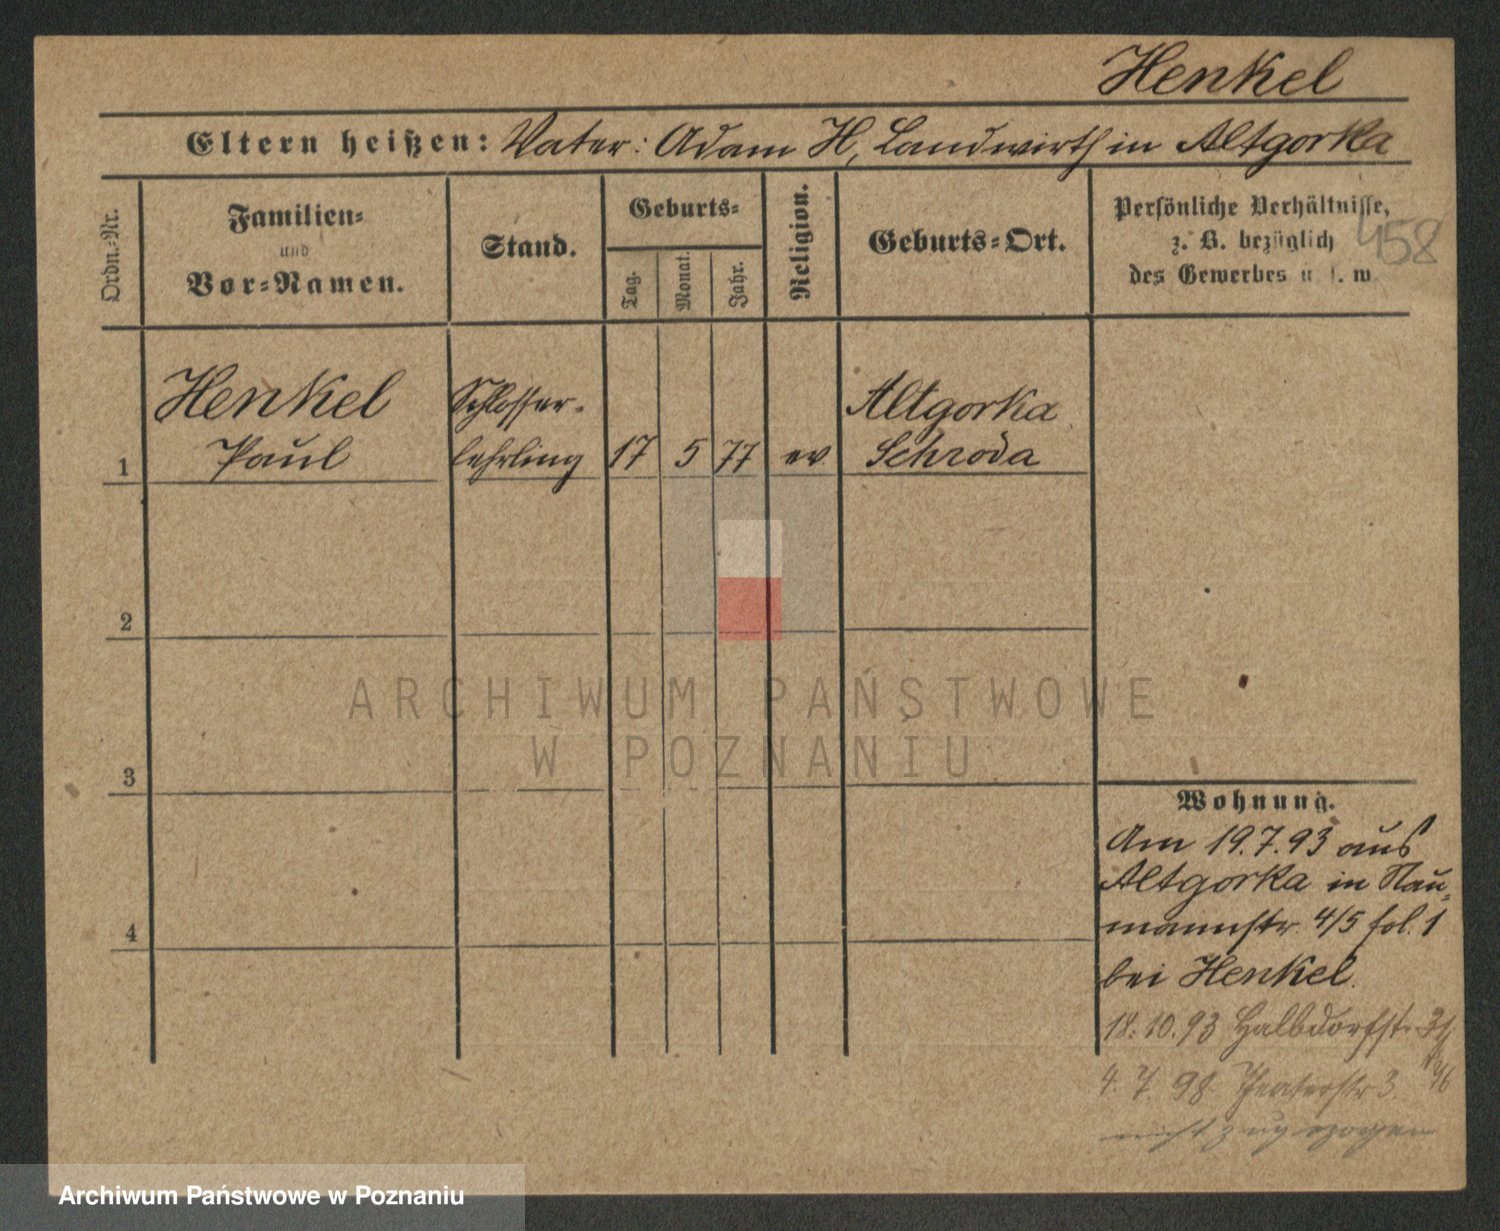 Henkel
Eltern heißen: Vater: Adam H, Landwirth in Altgorka
Ordn.-Nr.
Familien-
und
Vor-Namen.
Stand.
Geburts-
Tag.
Monat.
Jahr.
Religion.
Geburts-Ort.
Persönliche Verhältnisse,
z. B. bezüglich
des Gewerbes u. s. w.
458
1
Henkel
Paul
Schlosser-
lehrling
17 5 77 ev
Altgorka
Schroda
2
3
4
ARCHIWUM PAŃSTWOWE
W POZNANIU
Wohnung.
Am 19.7.93 aus
Altgorka in Nau-
mannstr. 4/5 fol. 1
bei Henkel.
18.10.93 Halbdorfstr.
4. 7. 98. Theaterstr 3.
nicht zugezogen
Archiwum Państwowe w Poznaniu